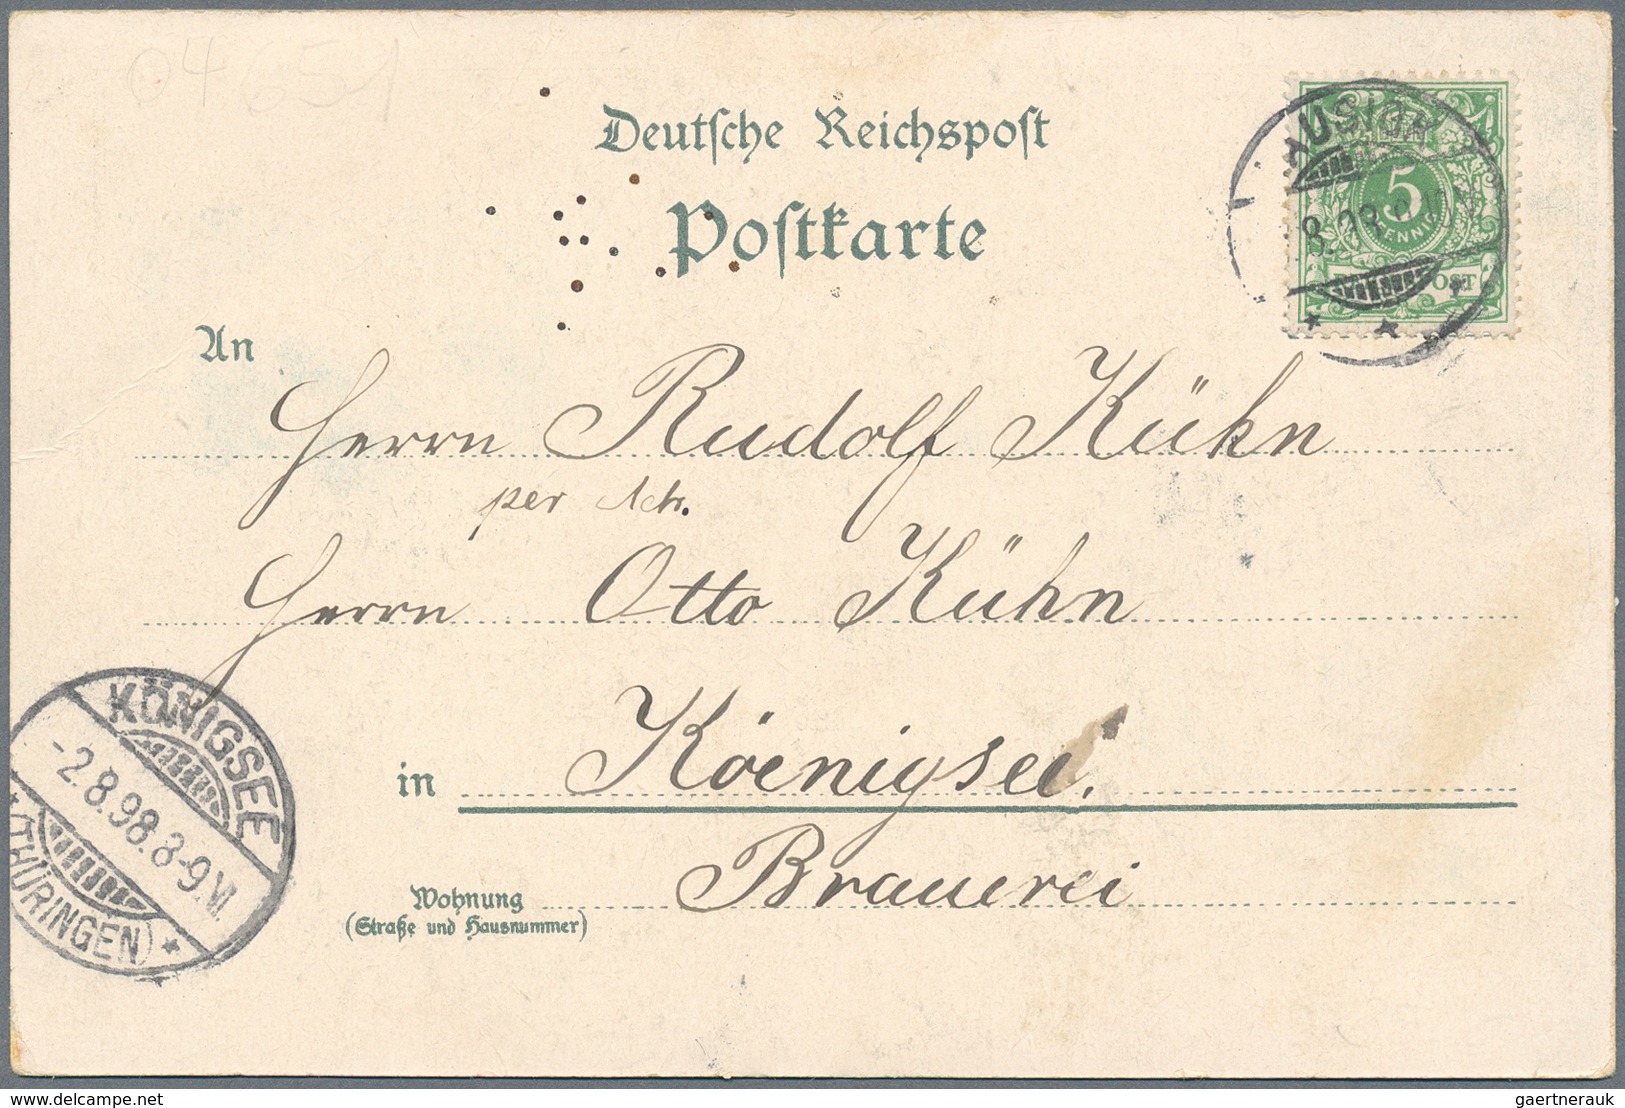 Deutsche Reichspost
Postkarte
AUSIGK
8.98.
5
PFENNIG
An
Herrn Rudolf Kühn
per Adr.
Herrn Otto Kühn
in Köenigsee.
Brauerei
Wohnung
(Straße und Hausnummer)
KÖNIGSEE
-2.8.98.8-9.V.
(THÜRINGEN)
delcampe.net
gaertnerauk